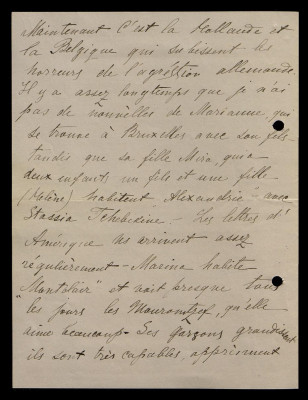 Maintenant c'est la Hollande et
la Belgique qui subissent les
horreurs de l'agréstion allemande.
Il y a assez longtemps que je n'ai
pas de nouvelles de Marianne, qui
se trouve à Bruxelles avec son fils
tandis que sa fille Mira, qui a
deux enfants un fils et une fille
(Hélène) habitent Alexandrie avec
Stassia - Les lettres d'
Amérique les arrivent assez
régulièrement - Marina habite
"Montclair" et voit presque tous
les jours les Mouromtzef, qu'elle
aime beaucoup - Ses garçons grandissent
ils sont très capables, apprennent